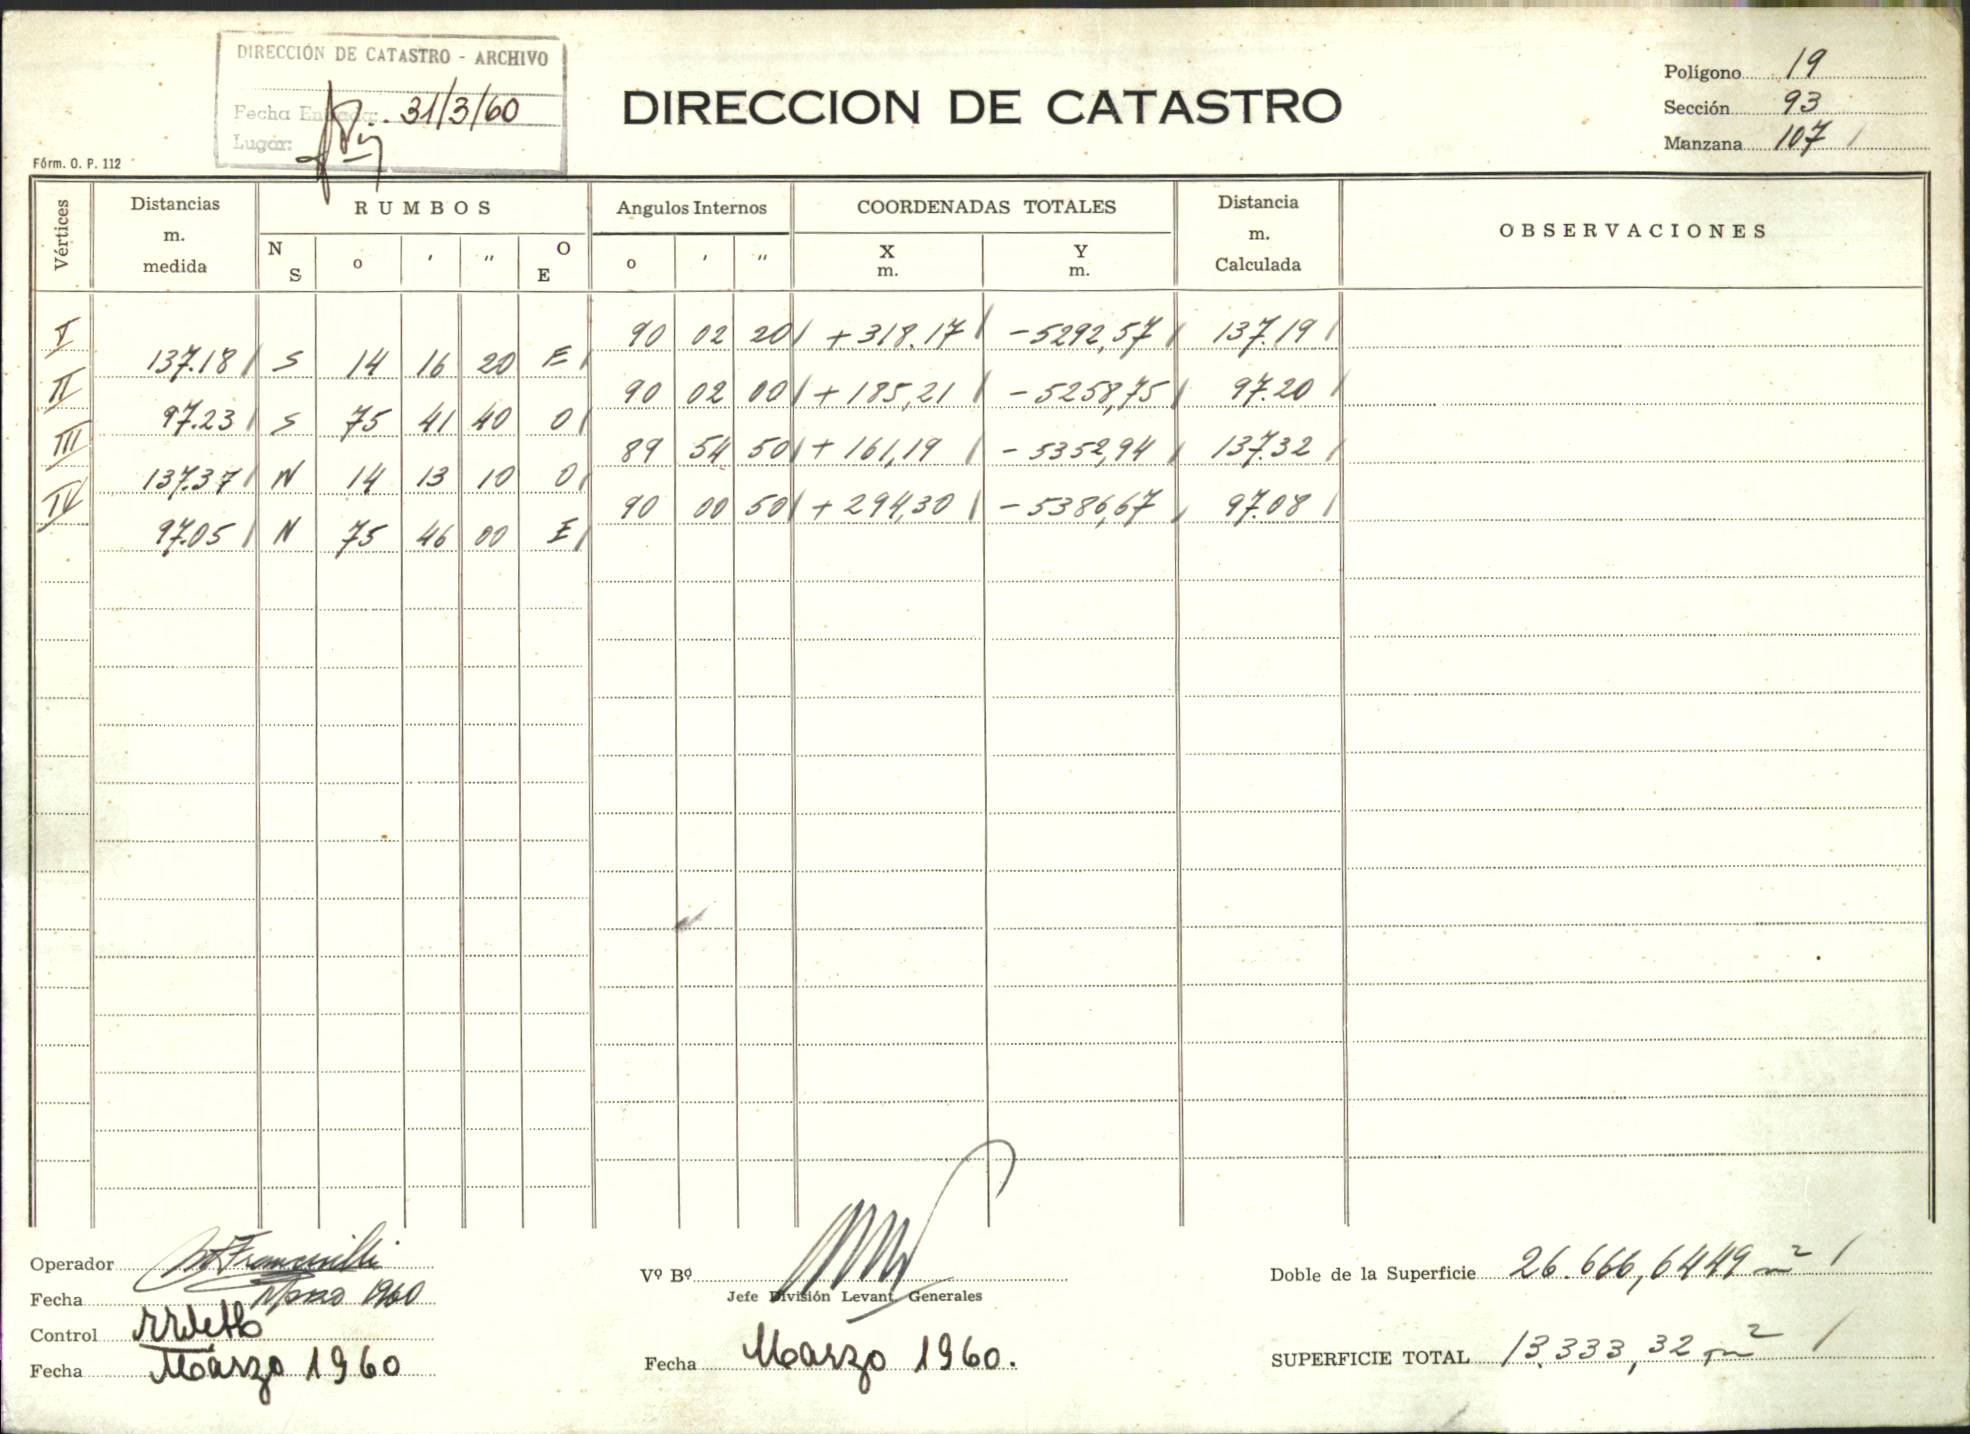 DIRECCIÓN DE CATASTRO - ARCHIVO
Fecha Entrada: 31/3/60
Lugar:
Fórm. O. P. 112
DIRECCION DE CATASTRO
Polígono 19
Sección 93
Manzana 107
Vértices
Distancias m. medida
RUMBOS
N S o ' " O E
Angulos Internos
o ' "
COORDENADAS TOTALES
X m. Y m.
Distancia m. Calculada
OBSERVACIONES
I 90 02 20 + 318.17 - 5292,57 137.19
137.18 S 14 16 20 E
II 90 02 00 + 185,21 - 5258,75 97.20
97.23 S 75 41 40 O
III 89 54 50 + 161,19 - 5352,94 137.32
137.37 N 14 13 10 O
IV 90 00 50 + 294,30 - 5386,67 97.08
97.05 N 75 46 00 E
Operador
Fecha Marzo 1960
Control
Fecha Marzo 1960
Vº Bº
Jefe División Levant. Generales
Fecha Marzo 1960.
Doble de la Superficie 26.666,6449 m²
SUPERFICIE TOTAL 13.333,32 m²